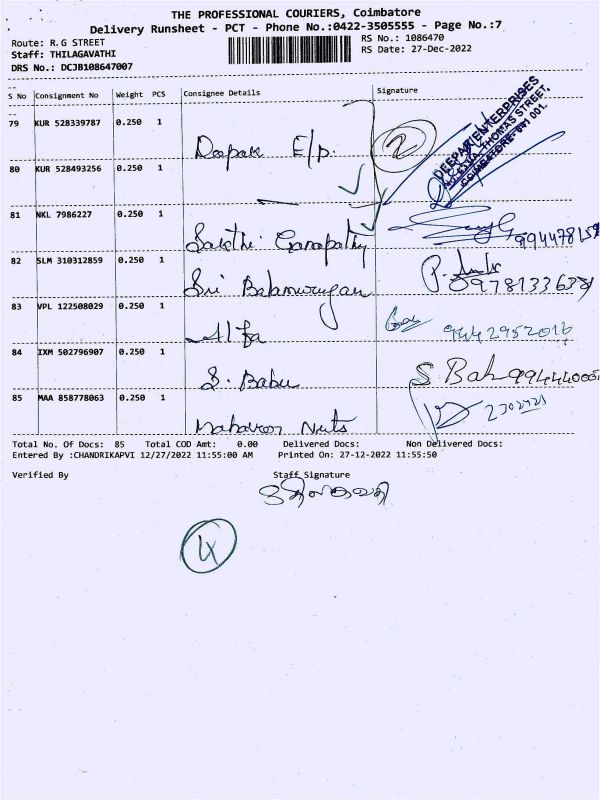 THE PROFESSIONAL COURIERS, Coimbatore
Delivery Runsheet - PCT - Phone No.:0422-3505555 - Page No.:7
Route: R.G STREET
RS No.: 1086470
Staff: THILAGAVATHI
RS Date: 27-Dec-2022
DRS No.: DCJB108647007
S No Consignment No Weight PCS Consignee Details Signature
79 KUR 528339787 0.250 1 Deepak E/p. 2
DEEPAK ENTERPRISES
THOMAS STREET,
COIMBATORE- 641 001.
80 KUR 528493256 0.250 1
81 NKL 7986227 0.250 1 Sakthi Ganapathy
82 SLM 310312859 0.250 1 Sri Balamurugan
83 VPL 122508029 0.250 1 Alfa 9442952016
84 IXM 502796907 0.250 1 S. Babu
85 MAA 858778063 0.250 1 Mahaveer Nuts
Total No. Of Docs: 85 Total COD Amt: 0.00 Delivered Docs: Non Delivered Docs:
Entered By :CHANDRIKAPVI 12/27/2022 11:55:00 AM Printed On: 27-12-2022 11:55:50
Verified By Staff Signature
4